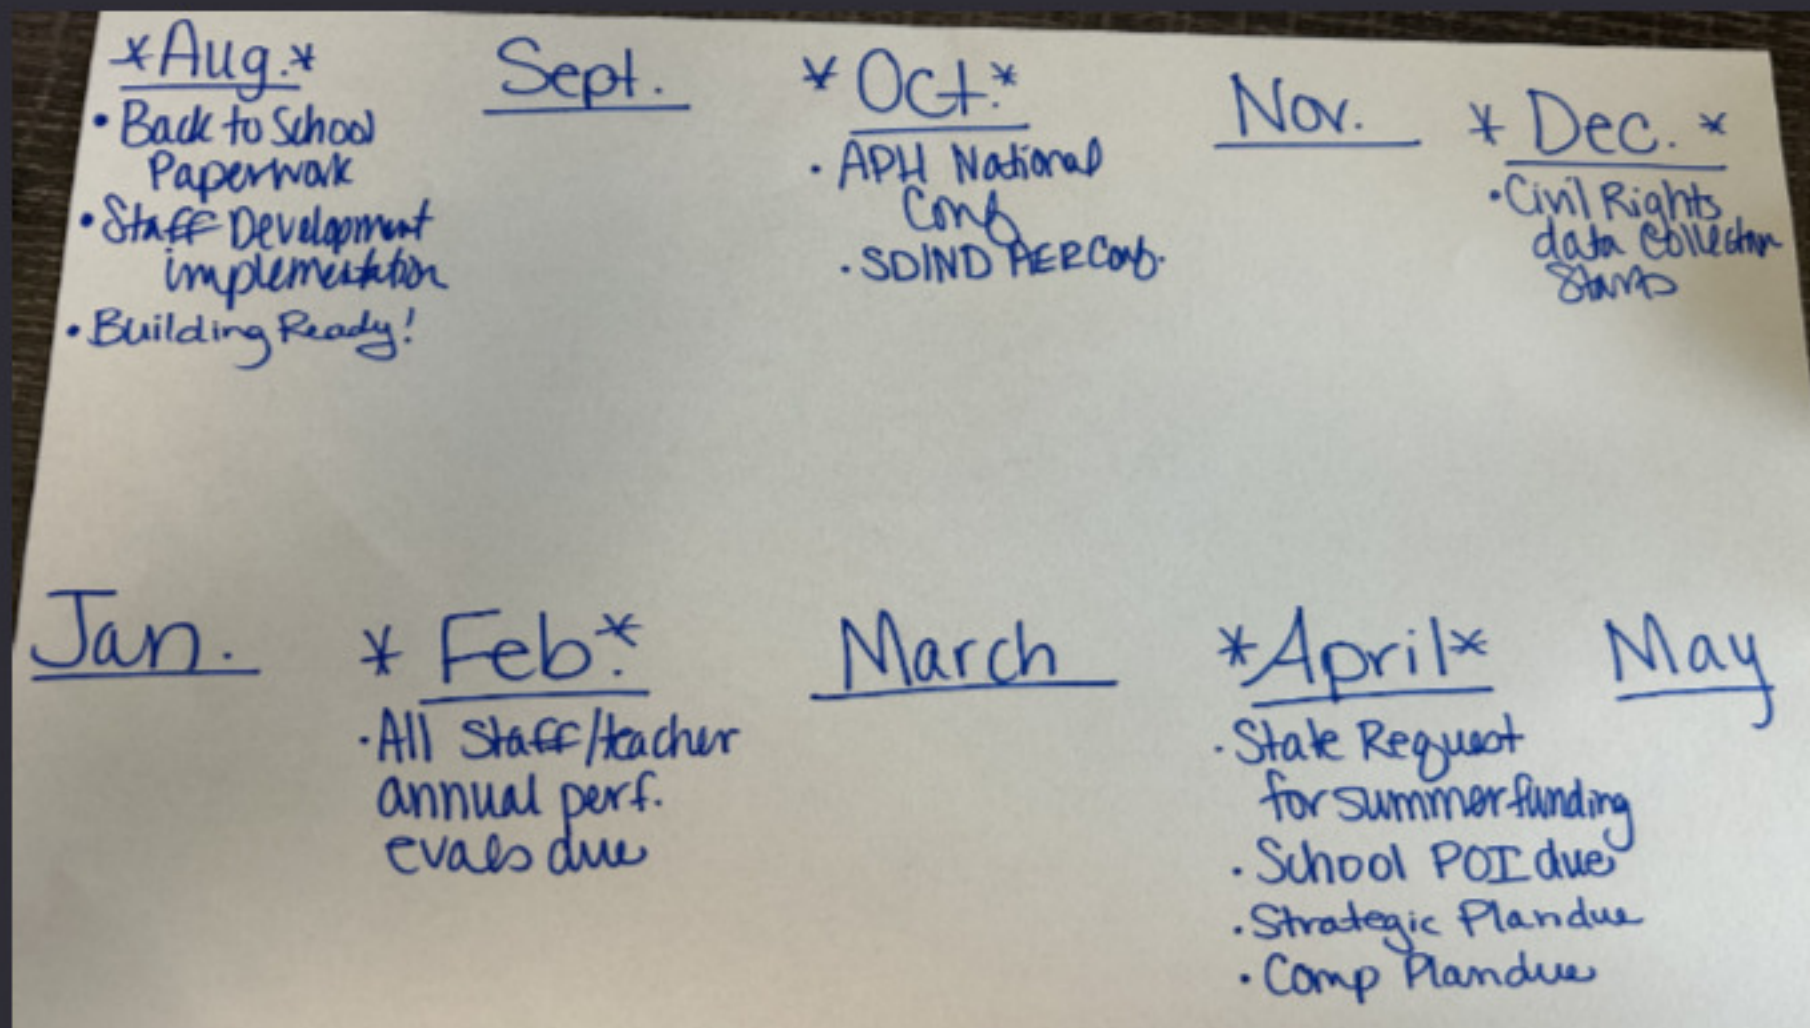 *Aug.*
• Back to School
Paperwork
• Staff Development
implementation
• Building Ready!
Sept.
* Oct.*
• APH National
Conf
• SD/ND AER Conf.
Nov.
* Dec. *
• Civil Rights
data Collection
Starts
Jan.
* Feb.*
• All Staff/teacher
annual perf.
evals due
March
*April*
• State Request
for summer funding
• School POI due
• Strategic Plan due
• Comp Plan due
May